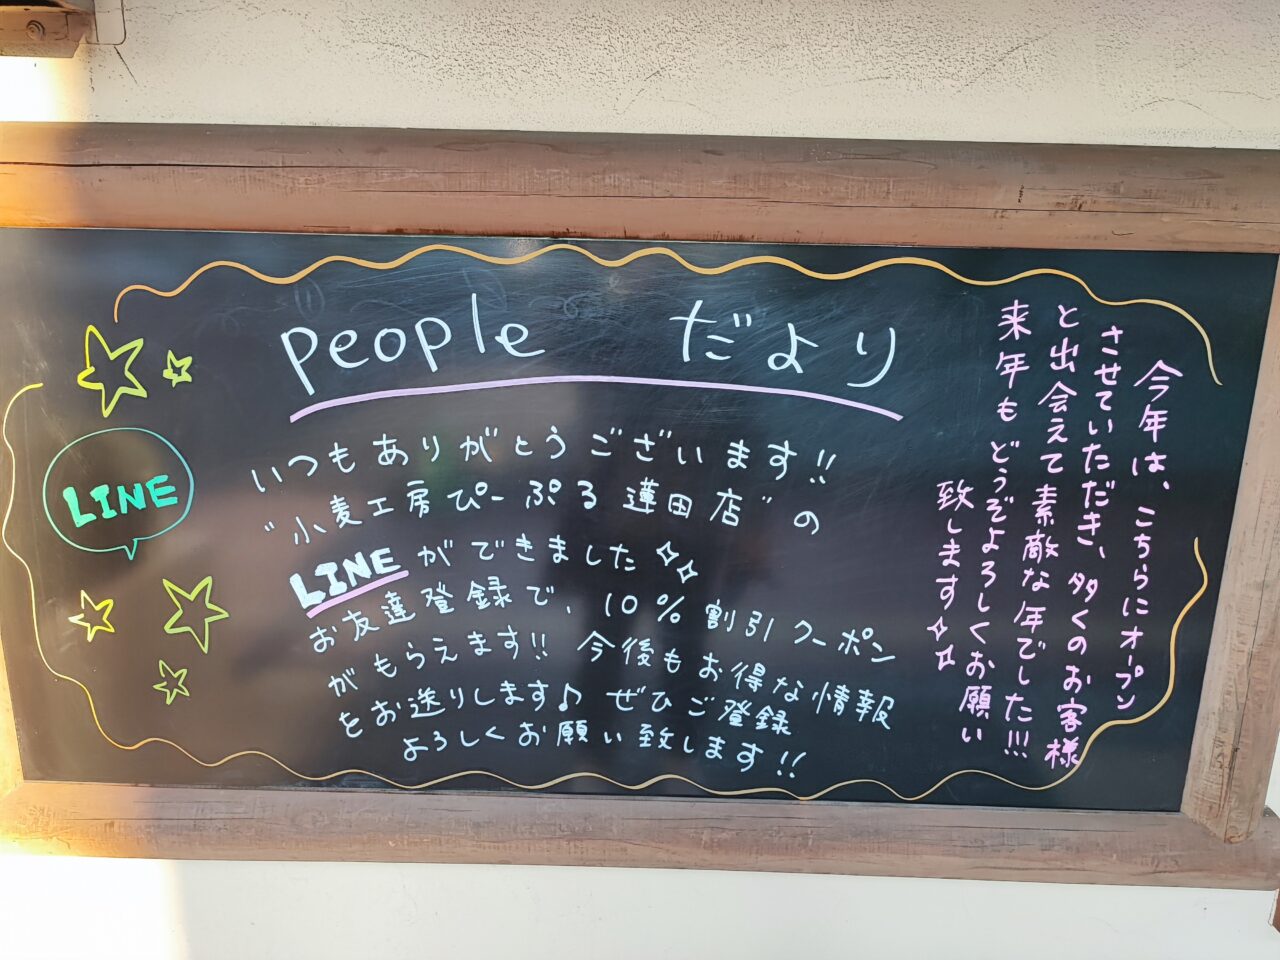 people だより
LINE
いつもありがとうございます!!
"小麦工房ぴーぷる蓮田店"の
LINEができました
お友達登録で、10%割引クーポン
がもらえます!! 今後もお得な情報
をお送りします♪ ぜひご登録
よろしくお願い致します!!
今年は、こちらにオープン
させていただき、多くのお客様
と出会えて素敵な年でした!!!
来年もどうぞよろしくお願い
致します